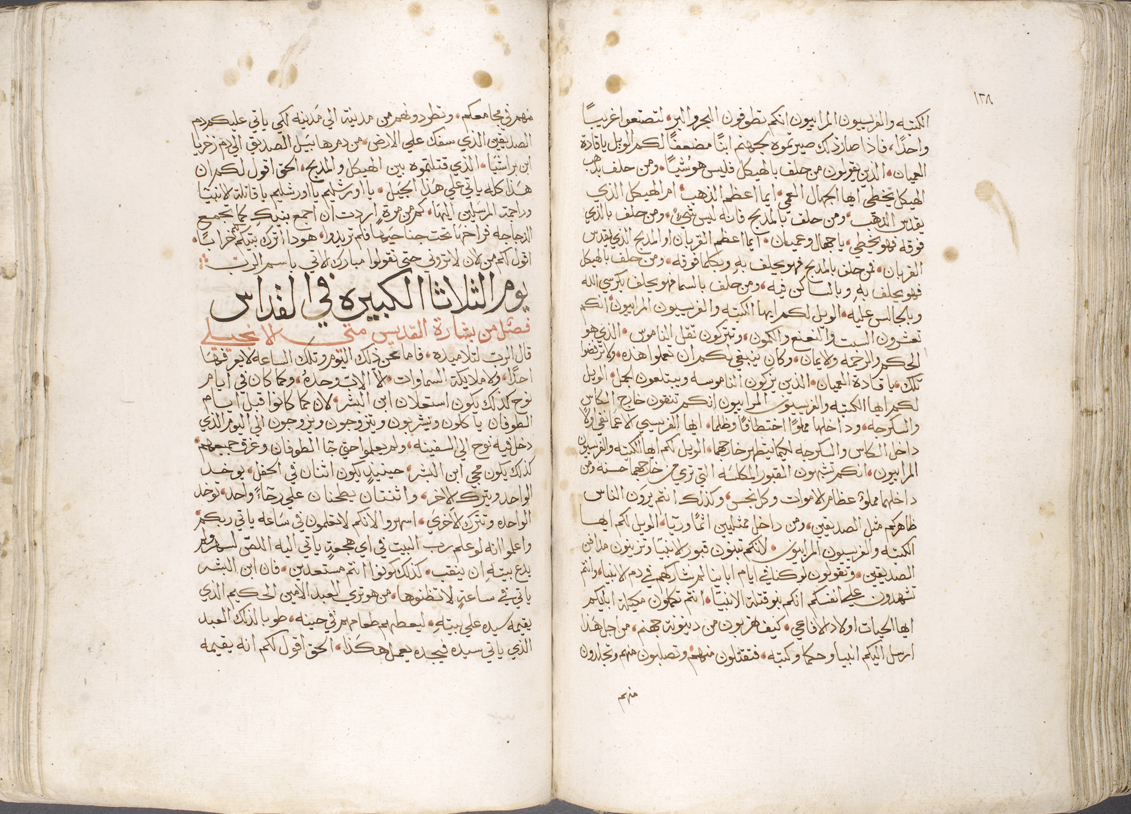 ١٣٨
الكتبه والفريسيون المرايون انكم تطوفون البحر والبر لتصنعوا غريبًا
واحدًا، فاذا صار ذلك صيرتموه لجهنم ابنًا مضعفًا لكم الويل يا قادة
العميان الذين يقولون من حلف بالهيكل فليس هو شيًا ومن حلف بذهب
الهيكل يخطي ايها الجهال العمي ايما اعظم الذهب ام الهيكل الذي
يقدس الذهب ومن حلف بالمدبح فانه ليس شي ومن حلف بالذي
فوقه فهو يخطي يا جهال وعميان ايما اعظم القربان او المدبح الذي يقدس
القربان فمن حلف بالمدبح فهو يحلف به وبكلما فوقه ومن حلف بالهيكل
فهو يحلف به وبالساكن فيه ومن حلف بالسما فهو يحلف بكرسي الله
وبالجالس عليه الويل لكم ايها الكتبه والفريسيون المرايون انكم
تعشرون السبت والنعنع والكمون وتتركون ثقل الناموس الذي هو
الحكم والرحمه والايمان وكان ينبغي لكم ان تعملوا هذه ولا ترفضوا
تلك يا قادة العميان الذين يزكون الناموسه ويبتلعون الجمل الويل
لكم ايها الكتبه والفريسيون المرايون انكم تنقون خارج الكاس
والسكرجه وداخلها مملوًا اختطافًا وظلمًا ايها الفريسي الاعما نقي اولًا
داخل الكاس والسكرجه لكيما يطهر خارجهما الويل لكم ايها الكتبه والفريسيون
المرايون انكم تشبهون القبور المكلسه التي تري من خارجها حسنه ومن
داخلها مملوة عظام الاموات وكل نجس وكذلك انتم يرون الناس
ظاهركم مثل الصديقين ومن داخل ممتليين اثمًا وريا الويل لكم ايها
الكتبه والفريسيون المرايون لانكم تبنون قبور الانبيا وتزينون مدافن
الصديقين وتقولون لو كنا في ايام ابايينا لم نشاركهم في دم الانبيا وانتم
تشهدون علي انفسكم انكم بنو قتلة الانبيا انتم تكملون مكيلة ابايكم
ايها الحيات اولاد الافاعي كيف تهربون من دينونة جهنم من اجل هذا
ارسل اليكم انبيا وحكما وكتبه فتقتلون منهم وتصلبون منهم وتجلدون
منهم
منهم في مجامعكم وتطردونهم من مدينة الي مدينه لكي ياتي عليكم دم
الصديقين الذي سفك علي الارض من دم هابيل الصديق الي دم زخريا
ابن براشيا الذي قتلتموه بين الهيكل والمدبح الحق اقول لكم ان
هذا كله ياتي علي هذا الجيل يا اورشليم يا اورشليم يا قاتلة الانبيا
وراجمة المرسلين اليها كم من مرة اردت ان اجمع بنيك كما تجمع
الدجاجه فراخها تحت جناحيها فلم تريدوا هوذا اترك بيتكم خرابًا
اقول لكم من الان لا ترونني حتي تقولوا مبارك الاتي باسم الرب
يوم الثلاثا الكبيره في القداس
فصل من بشارة القديس متي الانجيلي
قال الرب لتلاميذه فاما عن ذلك اليوم وتلك الساعه لا يعرفها
احد ولا ملايكة السماوات الا الاب وحده وكما كان في ايام
نوح كذلك يكون استعلان ابن البشر لان كما كانوا قبل ايام
الطوفان ياكلون ويشربون ويتزوجون ويزوجون الي اليوم الذي
دخل فيه نوح الي السفينه ولم يعلموا حتي جا الطوفان وغرق جميعهم
كذلك يكون مجي ابن البشر حينيذ يكون اثنان في الحقل يوخد
الواحد ويترك الاخر واثنتان يطحنان علي رحاء واحد توخد
الواحده وتترك الاخري اسهروا الانكم لا تعلمون في اي ساعه ياتي ربكم
واعلموا انه لو علم رب البيت في اي هجعة ياتي اليه اللص لسهر ولم
يدع بيته ان ينقب كذلك كونوا انتم مستعدين فان ابن البشر
ياتي في ساعة لا تظنوها من هو تري العبد الامين الحكيم الذي
يقيمه سيده علي بيته ليعطيهم طعامهم في حينه طوبا لذلك العبد
الذي ياتي سيده فيجده يعمل هكذا الحق اقول لكم انه يقيمه